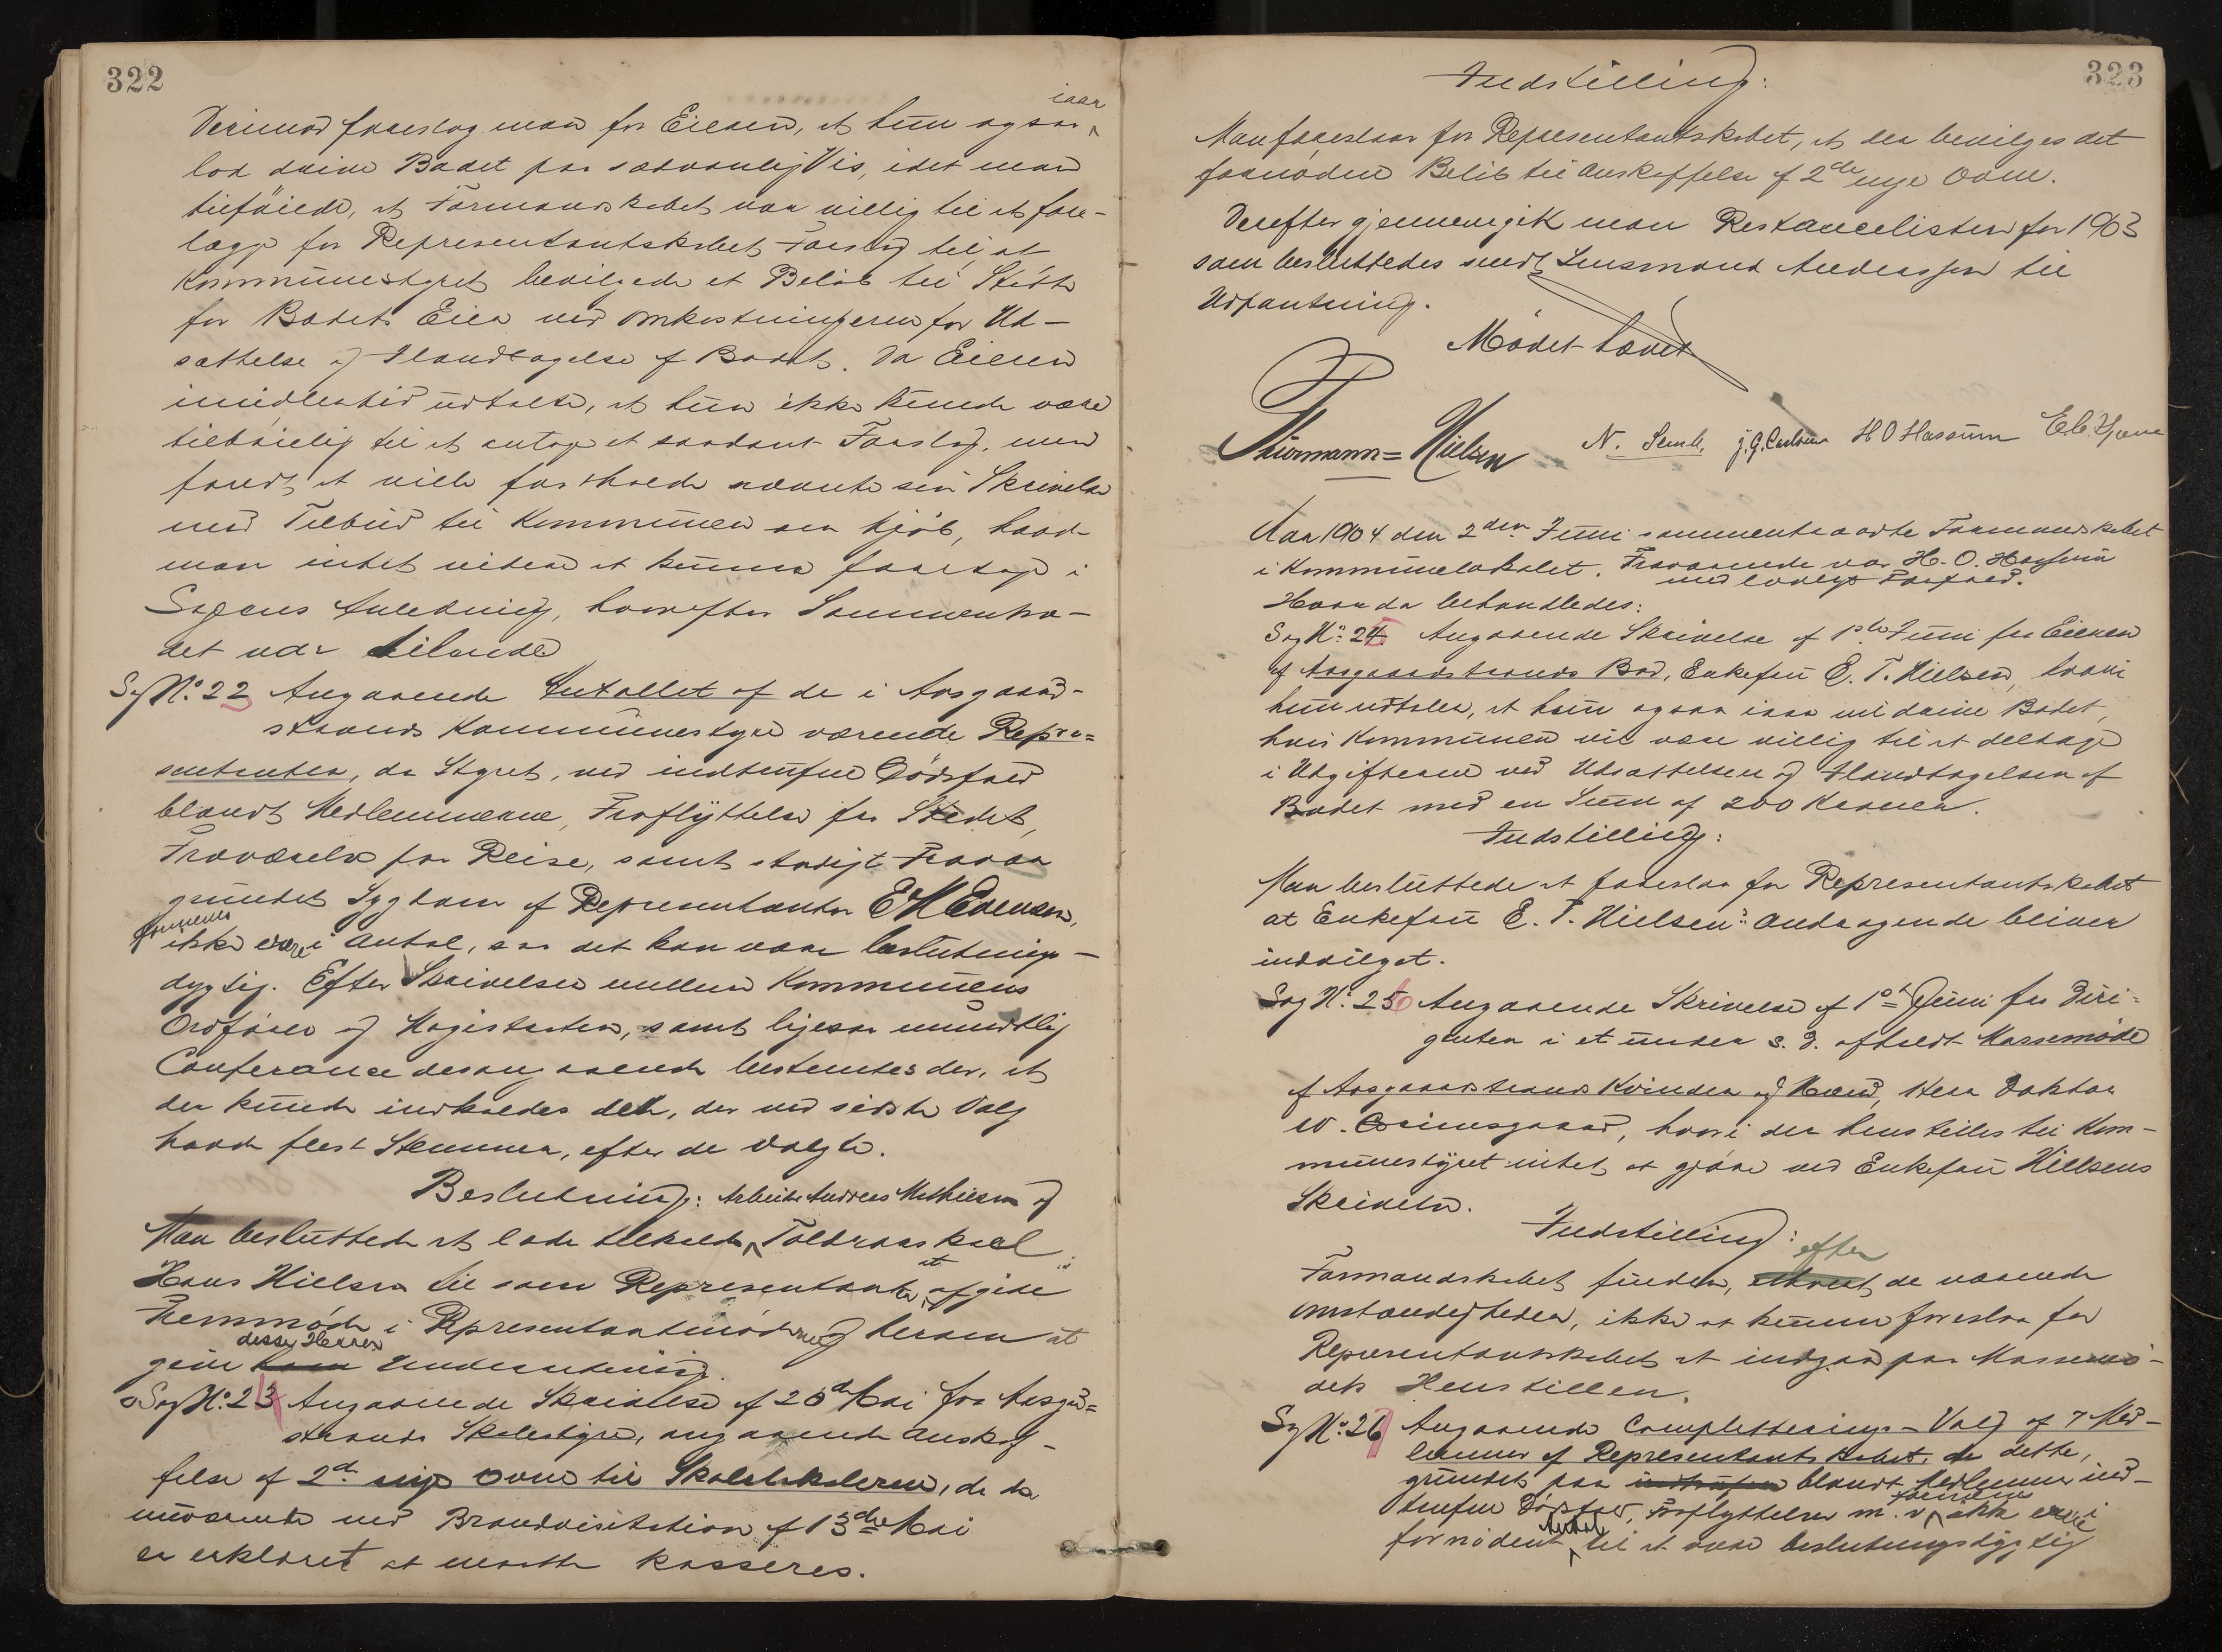 322
iaar
Derimod foreslog man for Eieren, at hun ogsaa
lod drive Badet paa sædvanlig Vis, idet man
tilføiede, at Formandskabet var villig til at fore-
lægge for Representantskabet Forslag til at
Kommunestyret bevilgede et Beløb til Støtte
for Badets Eier ved Omkostningerne for Ud-
sættelse og Ilandtagelse af Badet. Da Eieren
imidlertid udtalte, at hun ikke kunde være
tilbøielig til at antage et saadant Forslag, men
fandt at ville fastholde nævnte sin Skrivelse
med Tilbud til Kommunen om Kjøb, havde
man intet videre at kunne foretage i
Sagens Anledning, hvorefter Sammentræ-
det var tilende
Sag No. 23 Angaaende Antallet af de i Aasgaard-
strands Kommunestyre værende Repræ=
sentanter, da Styret, ved indtrufne Dødsfald
blandt Medlemmerne, Fraflyttelse fra Stedet,
Fraværelse paa Reise, samt stadigt Fravær
grundet Sygdom af Representanten E M Evensen,
formenes
ikke være i Antal, saa det kan være beslutnings-
dygtig. Efter Skrivelser mellem Kommunens
Ordfører og Magistraten, samt ligesaa mundtlig
Conferance desangaaende bestemtes der, at
der kunde indkaldes dem, der ved sidste Valg
havde flest Stemmer, efter de valgte.
Beslutning: Arbeider Andreas Mathiesen og
Man besluttede at lade tilkalde Toldraaskarl
Hans Nielsen til som Representanter at afgive
Fremmøde i Representantmøderne og herom at
disse Herrer
give ham Underretning.
Sag No. 24 Angaaende Skrivelse af 20de Mai fra Aasgrd=
strands Skolestyre, angaaende Anskaf-
felse af 2de nye Ovne til Skolelokalerne, da de
nuværende ved Brandvisitation af 13de Mai
er erklæret at maatte kasseres.
323
Indstilling:
Man foreslaar for Representantskabet, at der bevilges det
fornødne Beløb til Anskaffelse af 2de nye Ovne.
Derefter gjennemgik man Restancelisten for 1903
som besluttedes sendt Lensmand Andreassen til
Udpantning.
Mødet hævet
Thürmann=Nielsen N. Semb. J. G. Carlsen H O Hassum E. C.
Aar 1904 den 2den Juni sammentraadte Formandskabet
i Kommunelokalet. Fraværende var H. O. Hassum
med lovligt Forfald.
Hvorda behandledes:
Sag No. 25 Angaaende Skrivelse af 1ste Juni fra Eieren
af Aasgaardstrands Bad, Enkefru E. T. Nielsen, hvori
hun udtaler, at hun ogsaa iaar vil drive Badet,
hvis Kommunen vil være villig til at deltage
i Udgifterne ved Udsættelsen og Ilandtagelsen af
Badet med en Sum af 200 Kroner.
Indstilling:
Man besluttede at foreslaa for Representantskabet
at Enkefru E. T. Nielsens Andragende bliver
indvilget.
Sag No. 26 Angaaende Skrivelse af 1ste Juni fra Diri-
genten i et under s. D. afholdt Massemøde
af Aasgaardstrands Kvinder og Mænd, Herr Doktor
W. Grimsgaard, hvori der henstilles til Kom-
munestyret intet at gjøre ved Enkefru Nielsens
Skrivelse.
Indstilling:
efter
Formandskabet finder, de værende
Omstændigheder, ikke at kunne foreslaa for
Representantskabet at indgaa paa Massemø-
dets Henstillen.
Sag No. 27 Angaaende Completterings-Valg af 7 Med-
lemmer af Representantskabet, da dette,
grundet paa indtrufne blandt Medlemmer ind-
trufne Dødsfald, Fraflyttelser m. v. formenes ikke være i
fornødent Antal til at være beslutningsdygtig